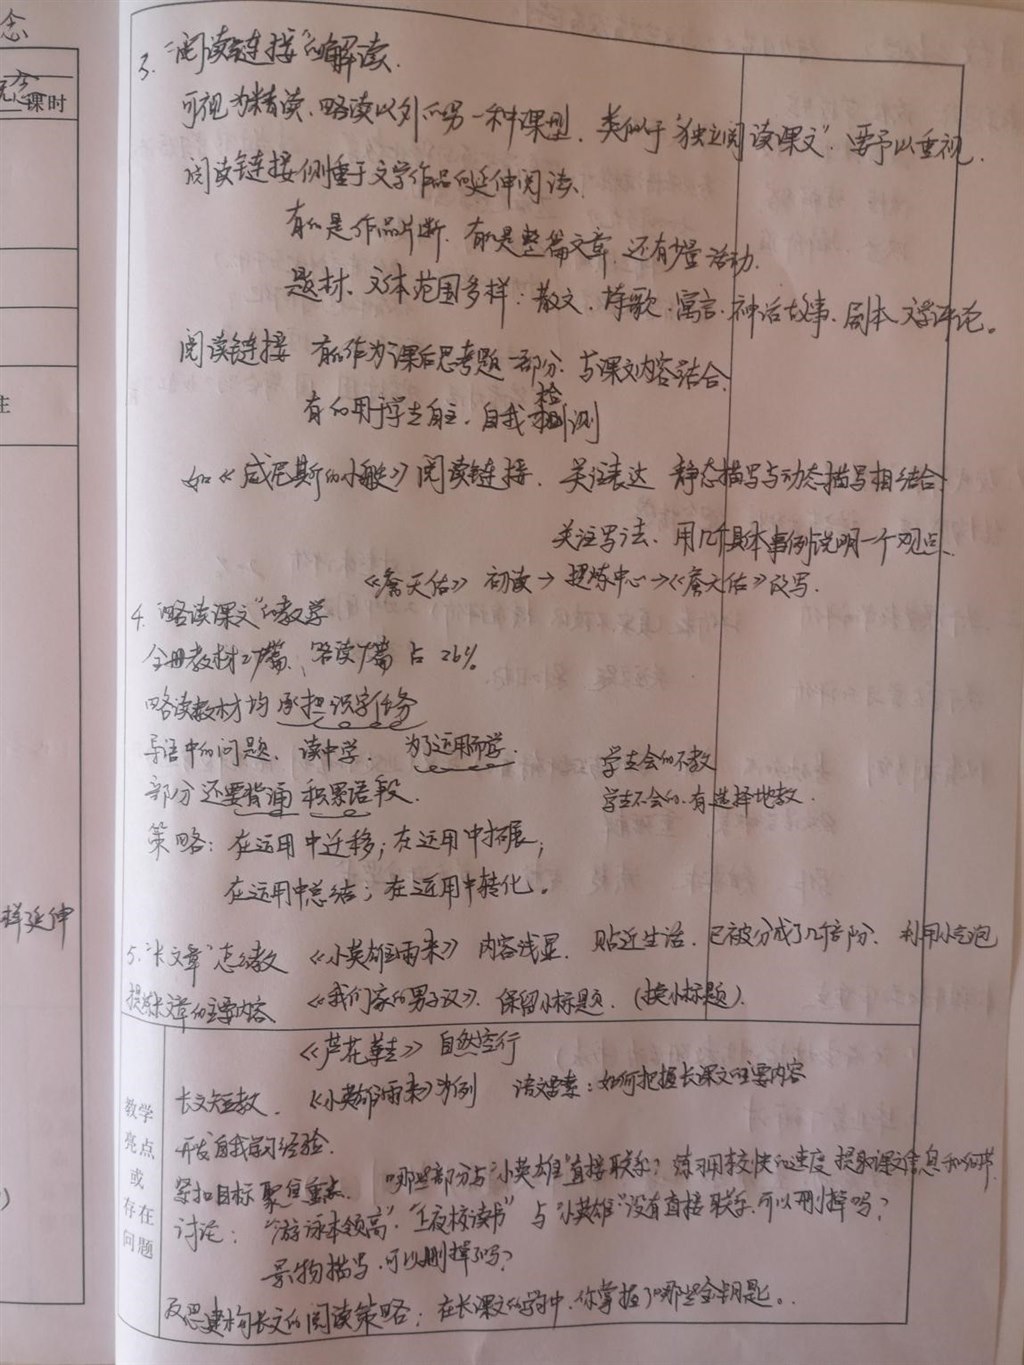 念
课时
主
样延伸
3. “阅读链接”的解读.
可视为精读、略读以外的另一种课型. 类似于“独立阅读课文”. 要予以重视.
阅读链接侧重于文学作品的延伸阅读、
有的是作品片断. 有的是整篇文章, 还有少量活动.
题材、文本范围多样: 散文、诗歌、寓言、神话故事、剧本、文学评论。
阅读链接 有的作为课后思考题一部分. 与课文内容结合.
有的用于学生自主. 自我检测
如《威尼斯的小艇》阅读链接. 关注表达 静态描写与动态描写相结合.
关注写法、用几个具体事例说明一个观点、
《詹天佑》 初读→提炼中心→《詹天佑》改写.
4. “略读课文”的教学
全册教材27篇、略读7篇 占 26%.
略读教材均承担识字任务
导语中的问题. 读中学. 为了运用而学.
学生会的不教
部分还要背诵 积累语段.
学生不会的. 有选择地教.
策略: 在运用中迁移; 在运用中拓展;
在运用中总结; 在运用中转化。
5. “长文章”怎么教 《小英雄雨来》 内容浅显. 贴近生活. 已被分成了几个部分. 利用小气泡
提炼长文章的主要内容 《我们家的男子汉》. 保留小标题. (换小标题).
《芦花鞋》 自然空行
教学
亮点
或
存在
问题
长文短教. 《小英雄雨来》为例 语文要素: 如何把握长课文的主要内容
开发自我学习经验.
紧扣目标 聚焦重点. 哪些部分与“小英雄”直接联系? 练习用较快的速度提取课文信息
讨论: “游泳本领高”. “上夜校读书” 与“小英雄”没有直接联系. 可以删掉吗?
景物描写. 可以删掉吗?
反思建构长文的阅读策略: 在长课文的学习中. 你掌握了哪些金钥匙。